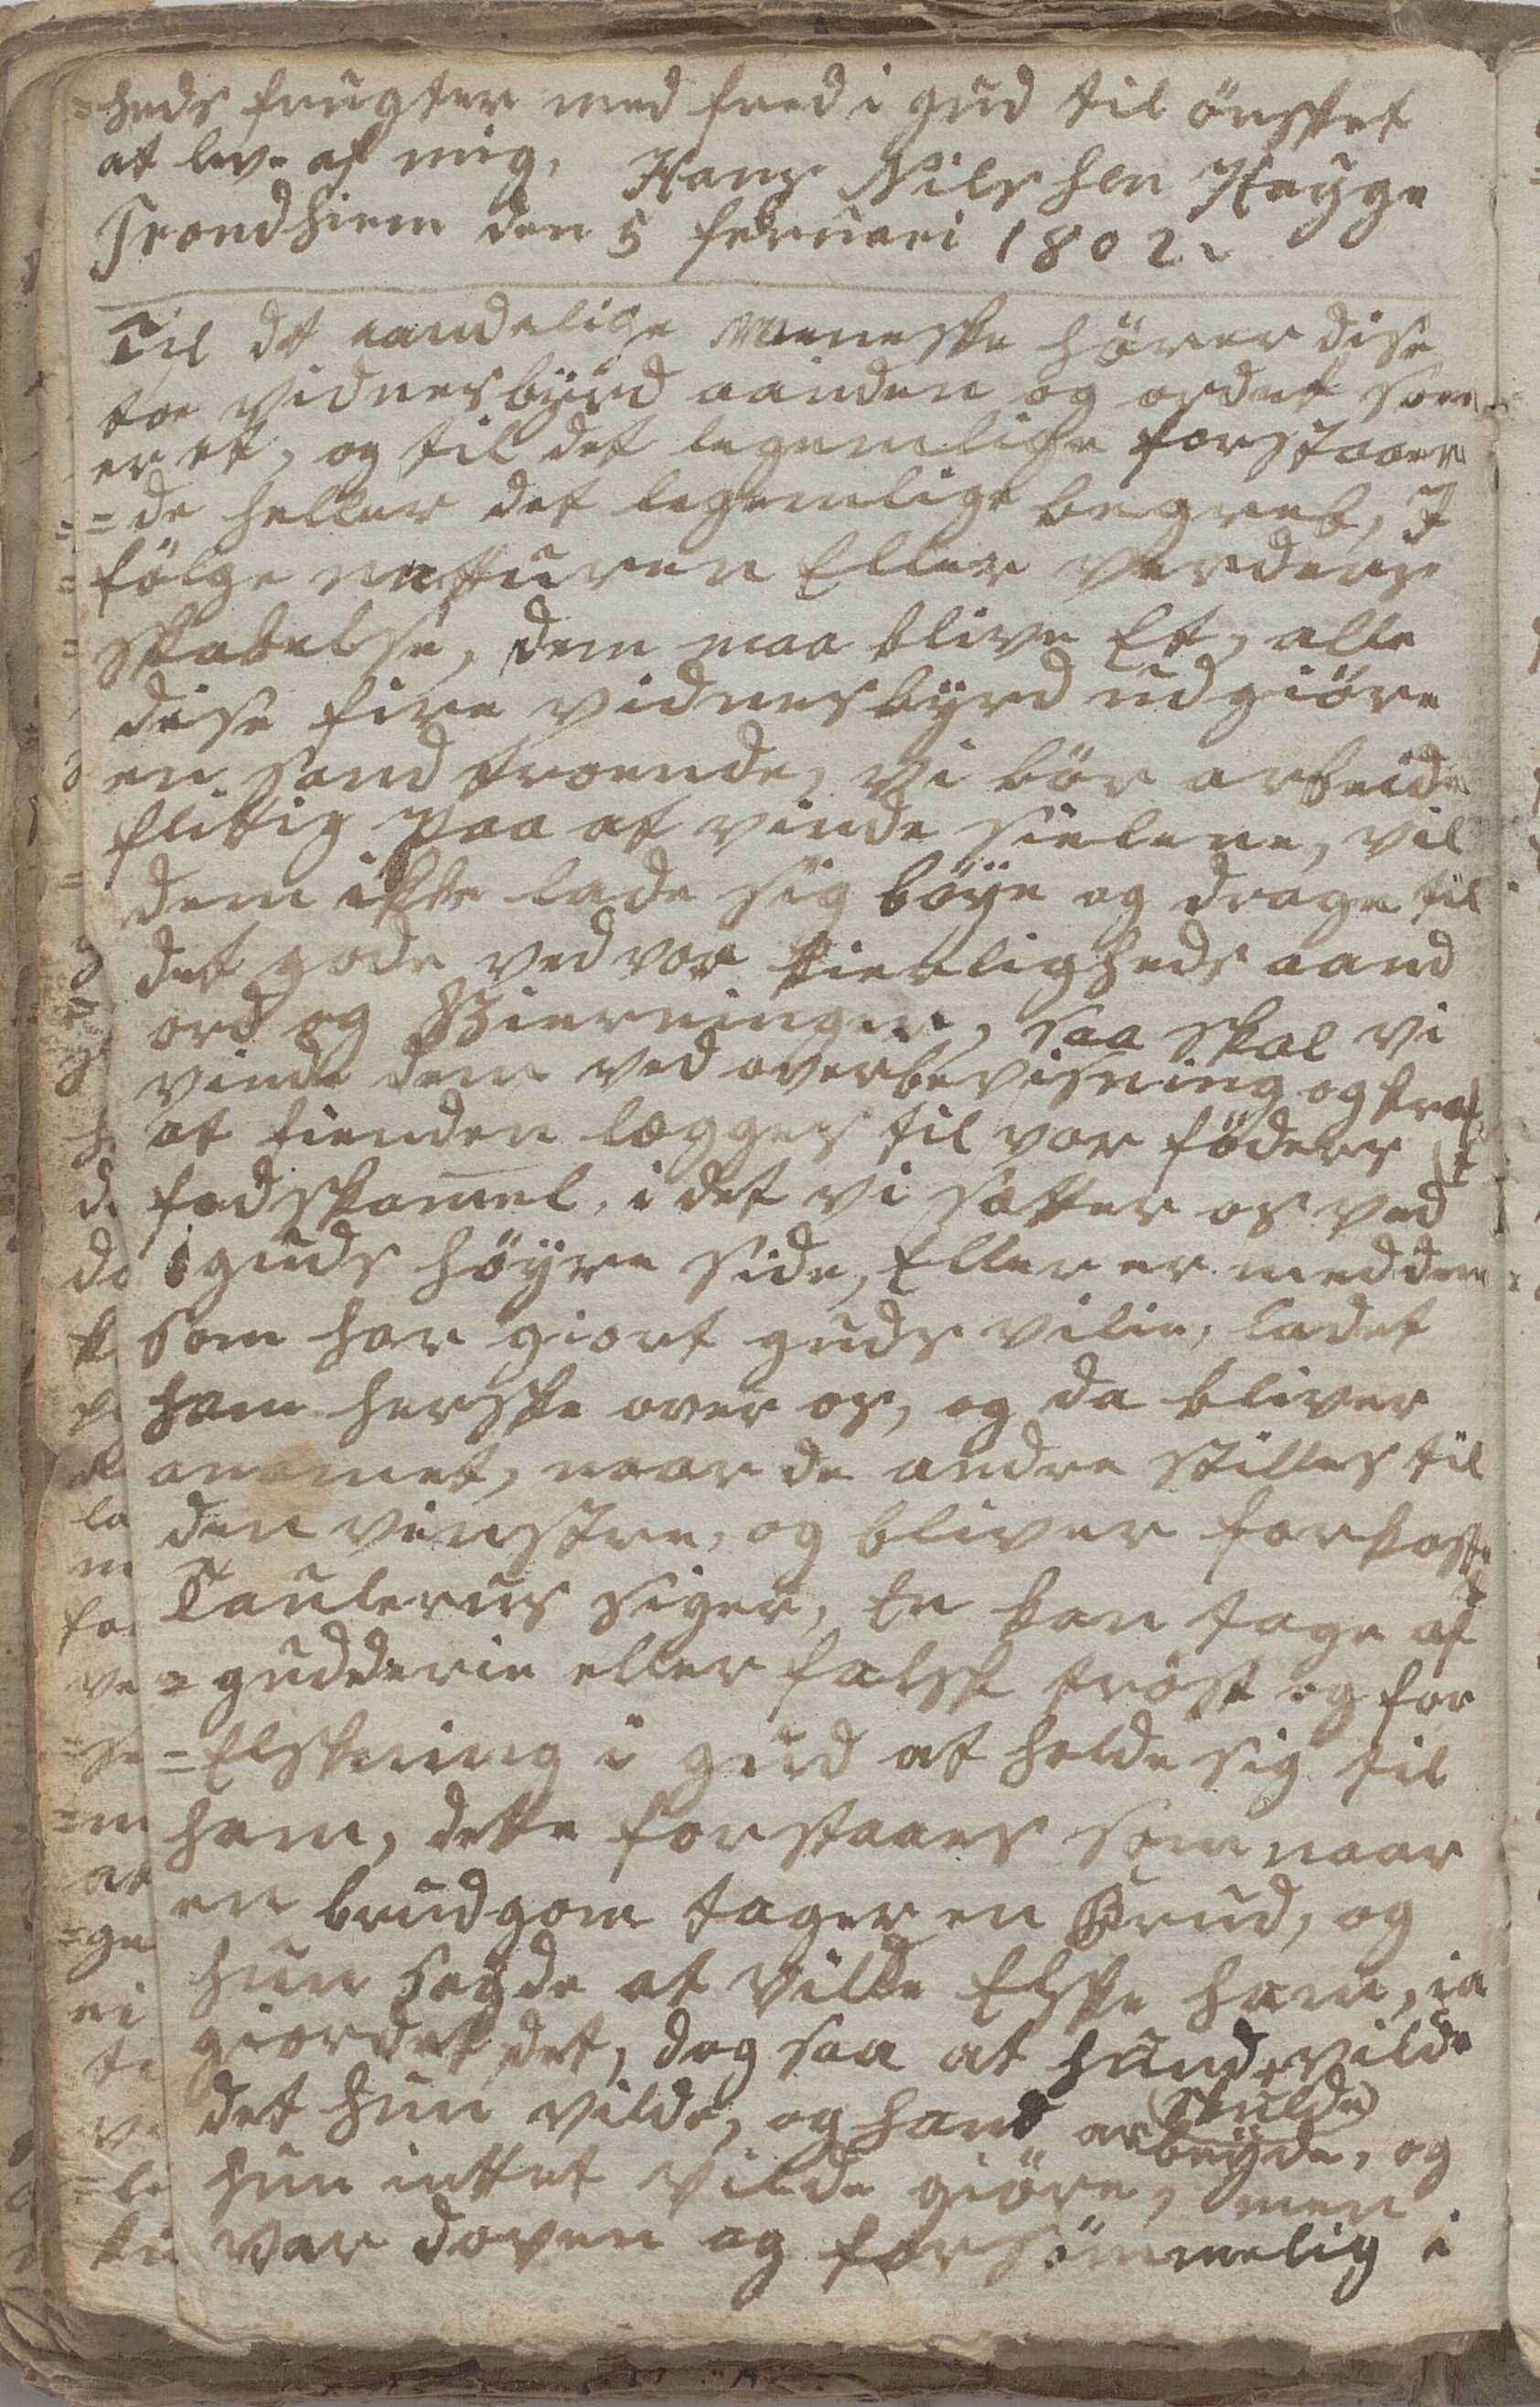 =heds frugter med fred i gud til önsket
at lev- af mig, Hans Nilshen Heyge
Trondhiem den 5 februari 1802
Til dt aandelige meneske hörer dise
toe vidnesbyrd aanden og ordet som
er et, og til det legemlige forstaaen
=de heller det legemlige begreb, I
fölge natturen Eller verdens
skabelse, dem maa blive Et, alle
dise fire vidnesbyrd udgiöre
en sand troende, vi bör arbeide
flittig paa at vinde sielene, vil
dem ikke lade sig böye og drage til
det gode ved vor kierligheds aand
ord og gierninger, saa skal vi
vinde dem ved overbevisning og kraf
at fienden legges til vor föders
fodskamel, i det vi setter os ved
guds höyre side, Eller er med dem
som har giort guds vilie, ladet
ham herske over os, og da bliver
anamet, naar de andre stilles til
den venstre, og bliver forkast
Taulerus siger, En kan tage af
=gudderie eller falsk tröst og for
=Elskning i gud at holde sig til
ham, dette forstaaes som naar
en brudgom tager en Brud, og
hun sagde at ville Elske ham, ia
giordet det, dog saa at hund vilde
det hun vilde, og hand (skulde)
arbeyde, og
hun inttet vilde giöre, men
var doven og forsömmelig i